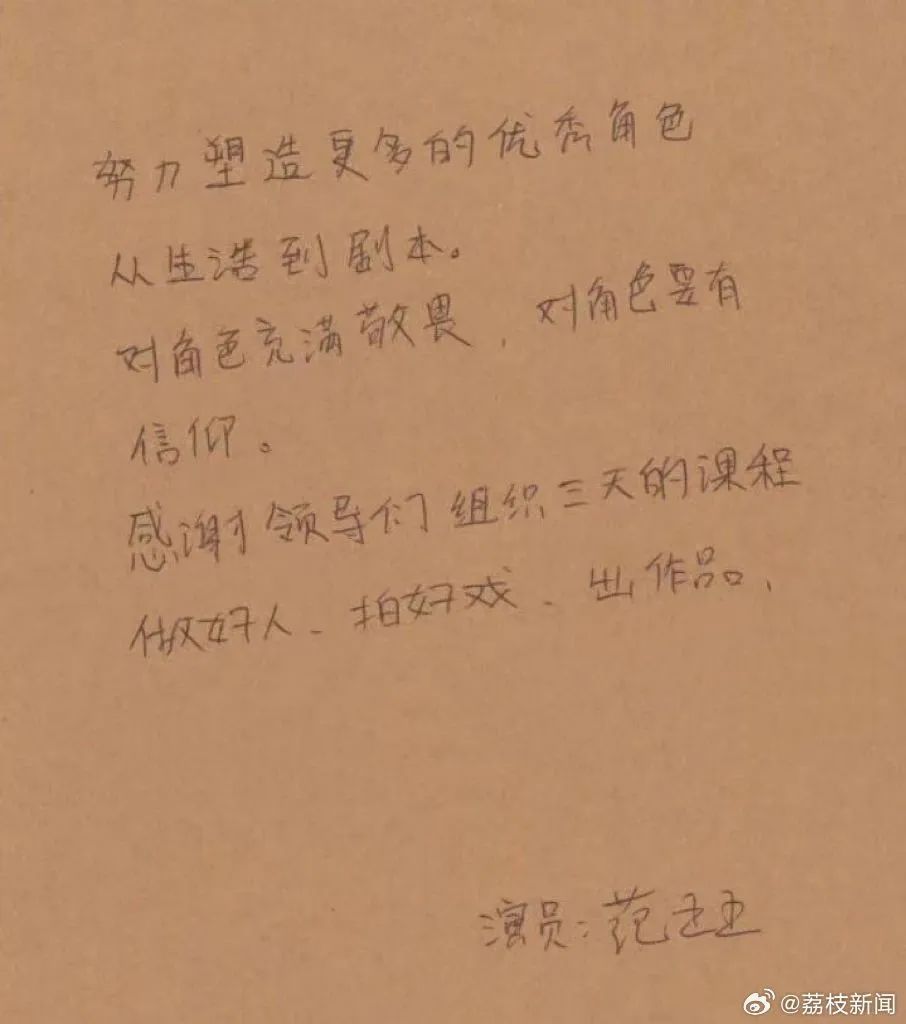 努力塑造更多的优秀角色
从生活到剧本。
对角色充满敬畏，对角色要有
信仰。
感谢领导们组织三天的课程
做好人、拍好戏、出作品、
演员：范丞丞
@荔枝新闻